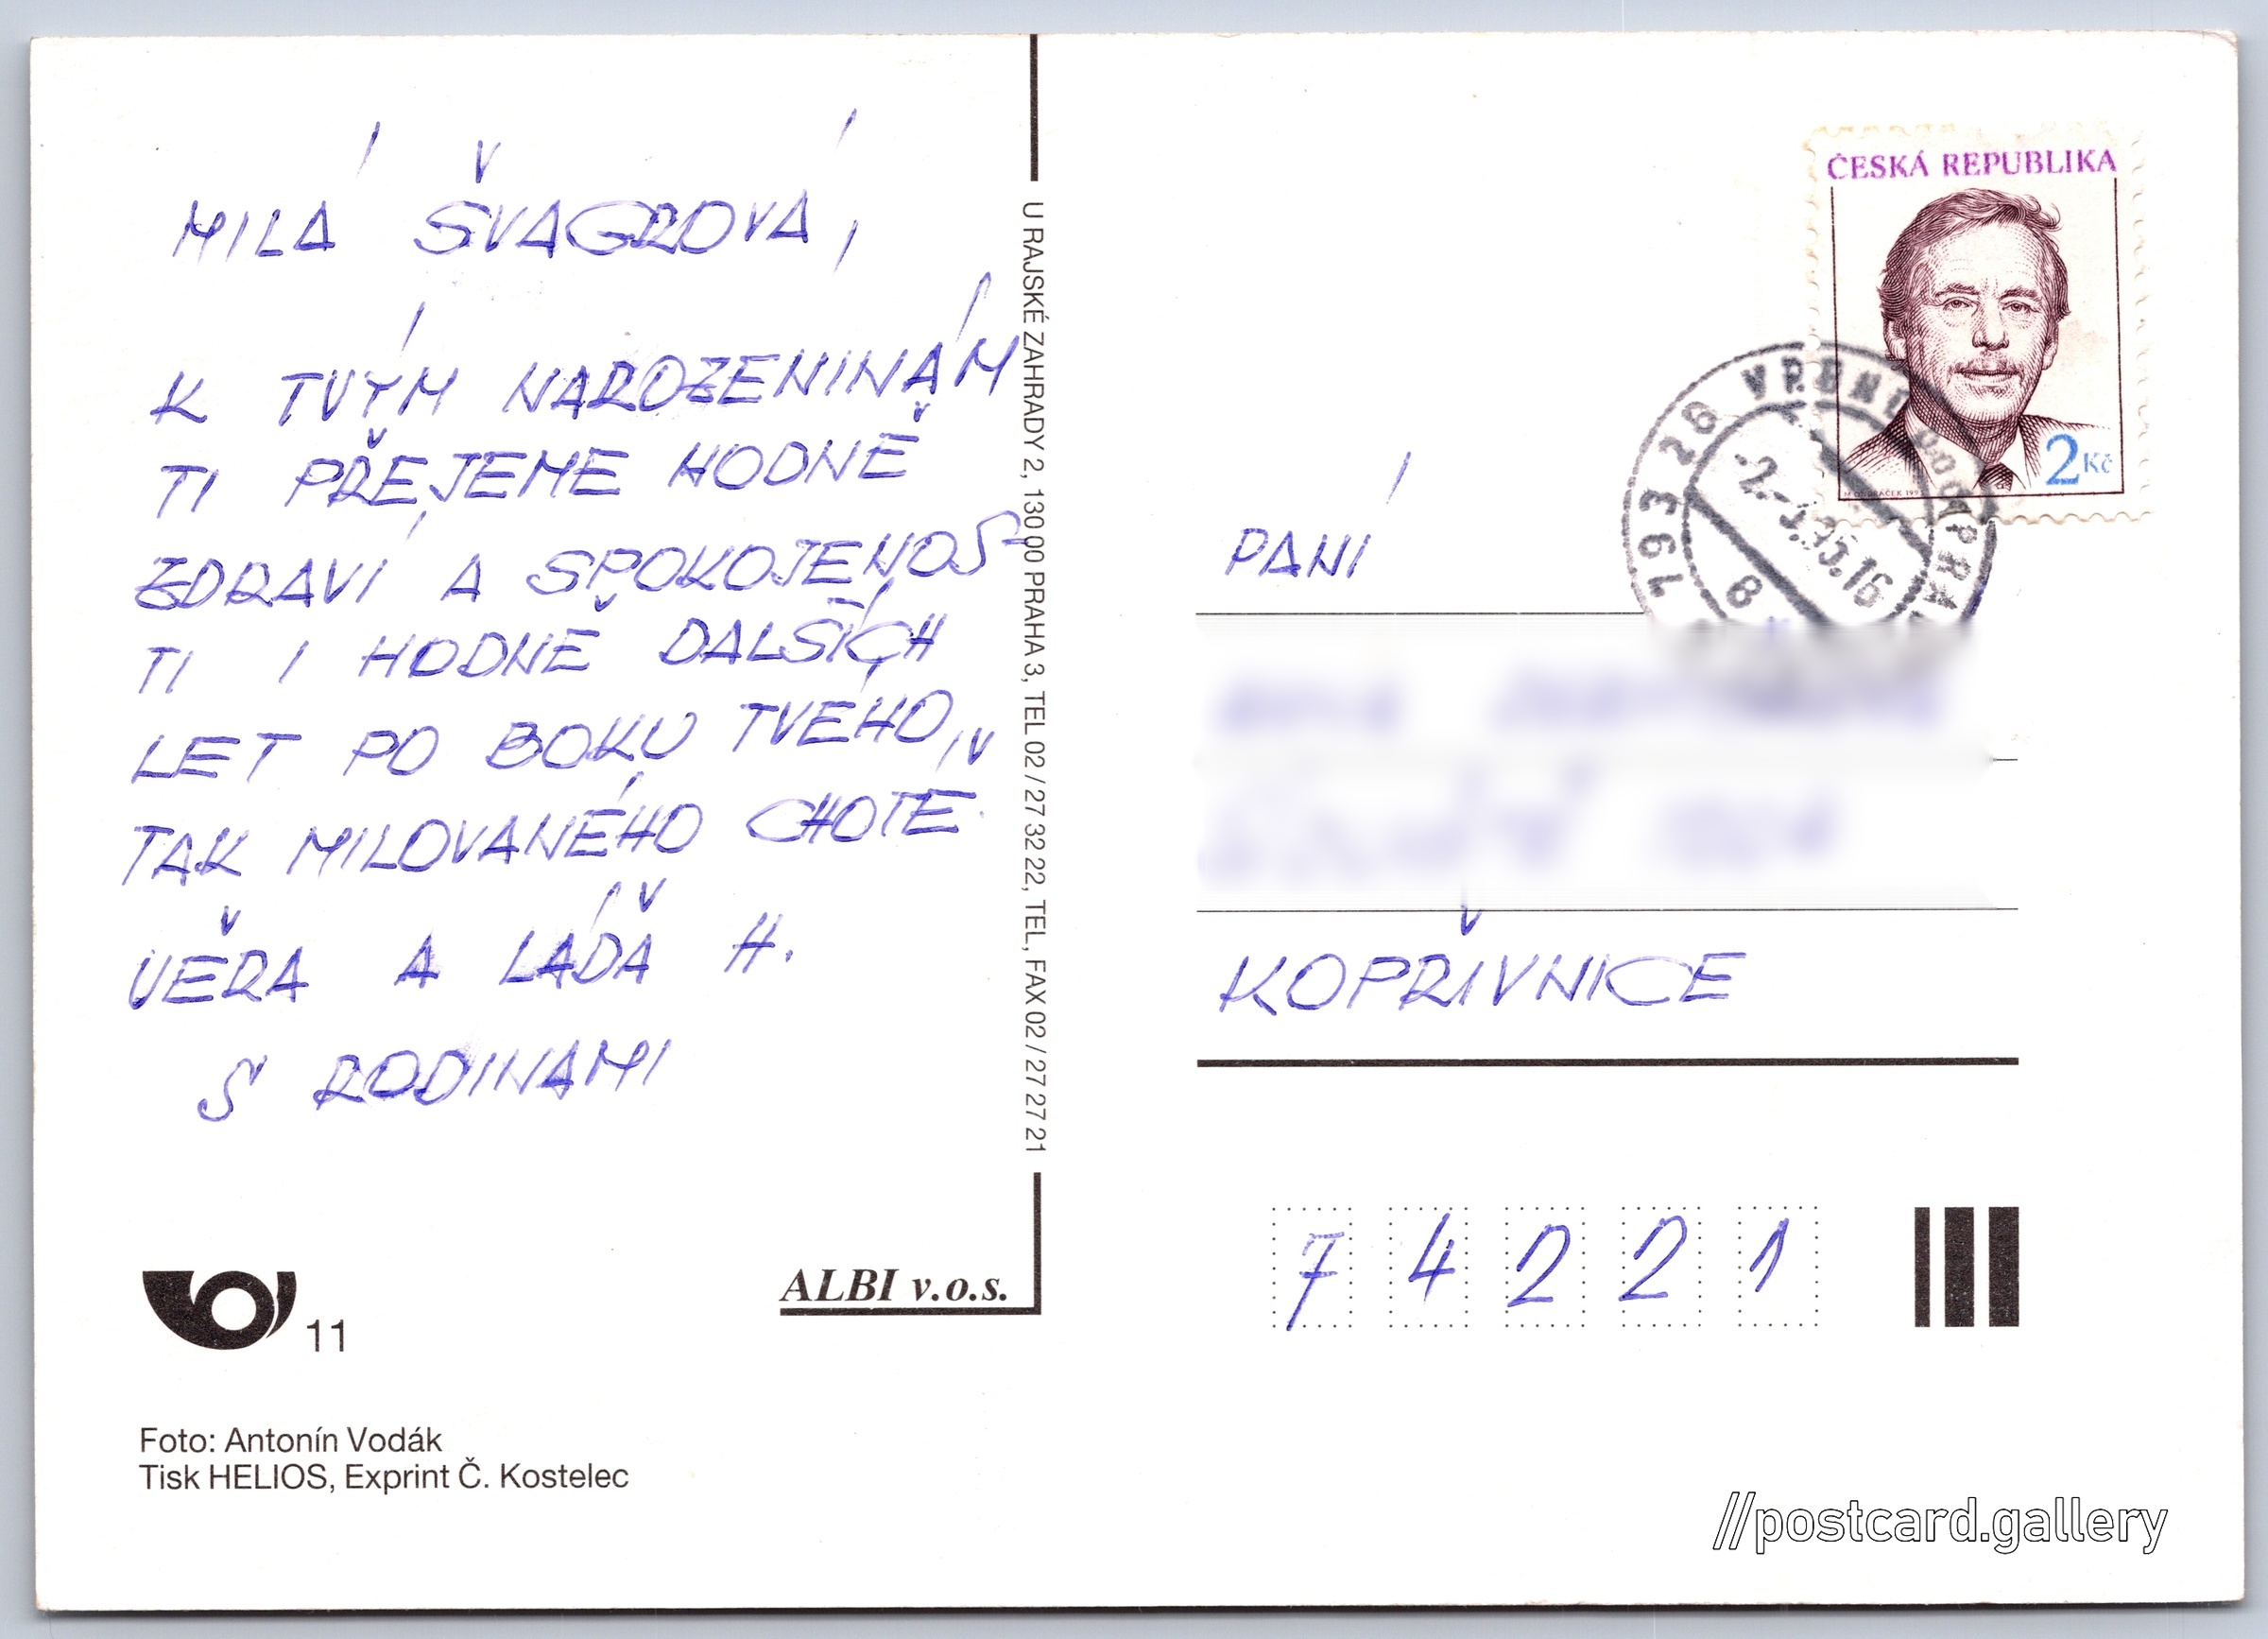 MILÁ ŠVAGROVÁ,
K TVÝM NAROZENINÁM
TI PŘEJEME HODNĚ
ZDRAVÍ A SPOKOJENOS-
TI I HODNĚ DALŠÍCH
LET PO BOKU TVÉHO,
TAK MILOVANÉHO CHOTĚ.
VĚRA A LÁĎA H.
S RODINAMI
11
Foto: Antonín Vodák
Tisk HELIOS, Exprint Č. Kostelec
ALBI v.o.s.
U RAJSKÉ ZAHRADY 2, 130 00 PRAHA 3, TEL 02 / 27 32 22, TEL, FAX 02 / 27 27 21
ČESKÁ REPUBLIKA
2 Kč
793 26 VRBNO POD PRA
-2.-3.95.16
PANÍ
KOPŘIVNICE
7 4 2 2 1
//postcard.gallery